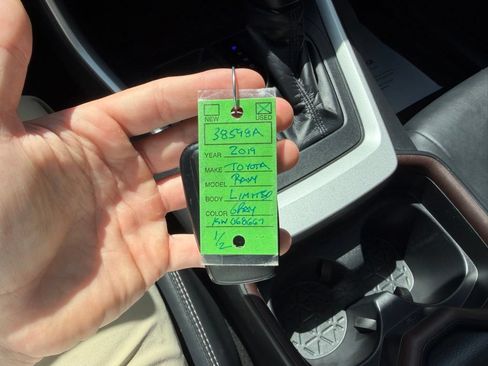 NEW USED
38598A
YEAR 2019
MAKE TOYOTA
MODEL RAV4
BODY LIMITED
COLOR GRAY
KW068667
1/2